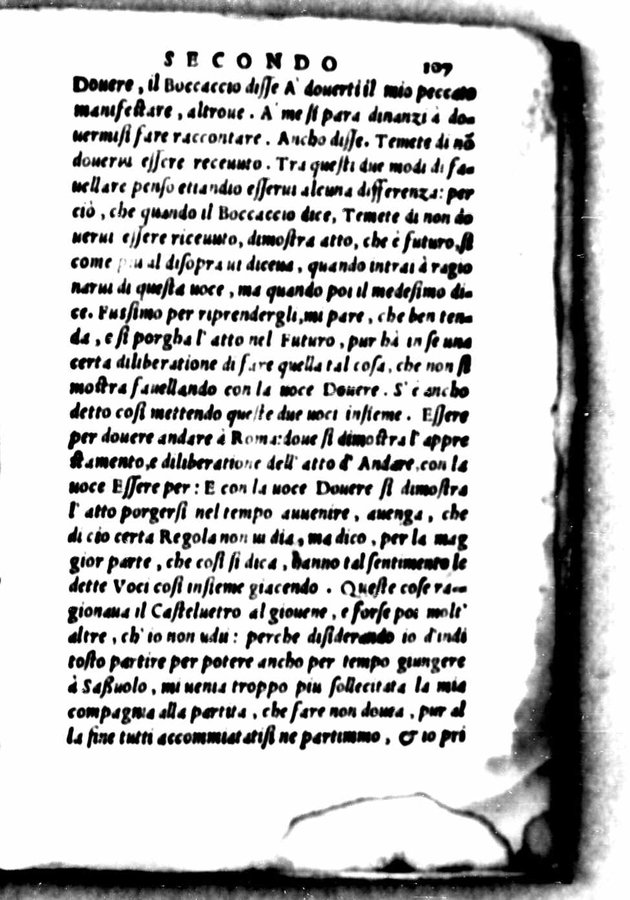 SECONDO 107
Douere, il Boccaccio disse A' douerti il mio peccato
manifestare, altroue. A' me si para dinanzi à do-
uermisi fare raccontare. Ancho disse. Temete di nō
douerui essere receuuto. Tra questi due modi di fa-
uellare penso etiandio esserui alcuna differenza: per
ciò, che quando il Boccaccio dice, Temete di non do
uerui essere riceuuto, dimostra atto, che è futuro, si
come piu al disopra ui diceua, quando intrai à ragio
narui di questa uoce, ma quando poi il medesimo di-
ce. Fussimo per riprendergli, mi pare, che ben ten-
da, e si porgha l'atto nel Futuro, pur hà in se una
certa diliberatione di fare quella tal cosa, che non si
mostra fauellando con la uoce Douere. S'è ancho
detto cosi mettendo queste due uoci insieme. Essere
per douere andare à Roma: doue si dimostra l'appre
stamento, e diliberatione dell'atto d'Andare, con la
uoce Essere per: E con la uoce Douere si dimostra
l'atto porgersi nel tempo auuenire, auenga, che
di cio certa Regola non ui dia, ma dico, per la mag
gior parte, che cosi si dica, hanno tal sentimento le
dette Voci cosi insieme giacendo. Queste cose ra-
gionaua il Casteluetro al giouene, e forse poi molt'
altre, ch'io non udii: perche disiderando io d'indi
tosto partire per potere ancho per tempo giungere
à Saßuolo, mi uenia troppo piu sollecitata la mia
compagnia alla partita, che fare non douea, pur al
la fine tutti accommiatatisi ne partimmo, & io pri